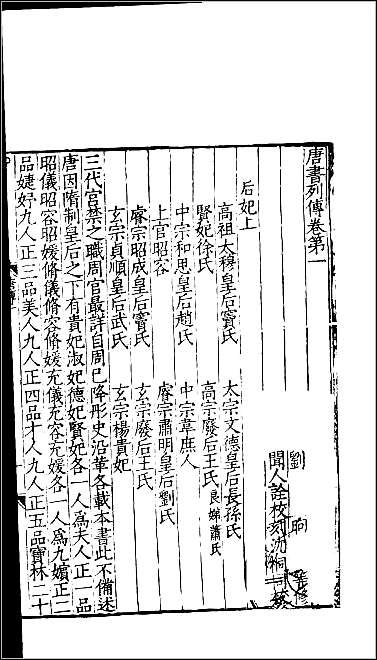 唐書列傳卷第一
劉昫
聞人詮校刻沈桐同
后妃上
高祖太穆皇后竇氏 太宗文德皇后長孫氏
賢妃徐氏 高宗廢后王氏良娣蕭氏
中宗和思皇后趙氏 中宗韋庶人
上官昭容 睿宗肅明皇后劉氏
睿宗昭成皇后竇氏 玄宗廢后王氏
玄宗貞順皇后武氏 玄宗楊貴妃
三代宮禁之職周官最詳自周已降彤史沿革各載本書此不備述
唐因隋制皇后之下有貴妃淑妃德妃賢妃各一人爲夫人正一品
昭儀昭容昭媛脩儀脩容脩媛充儀充容充媛各一人爲九嬪正二
品婕妤九人正三品美人九人正四品才人九人正五品寶林二十